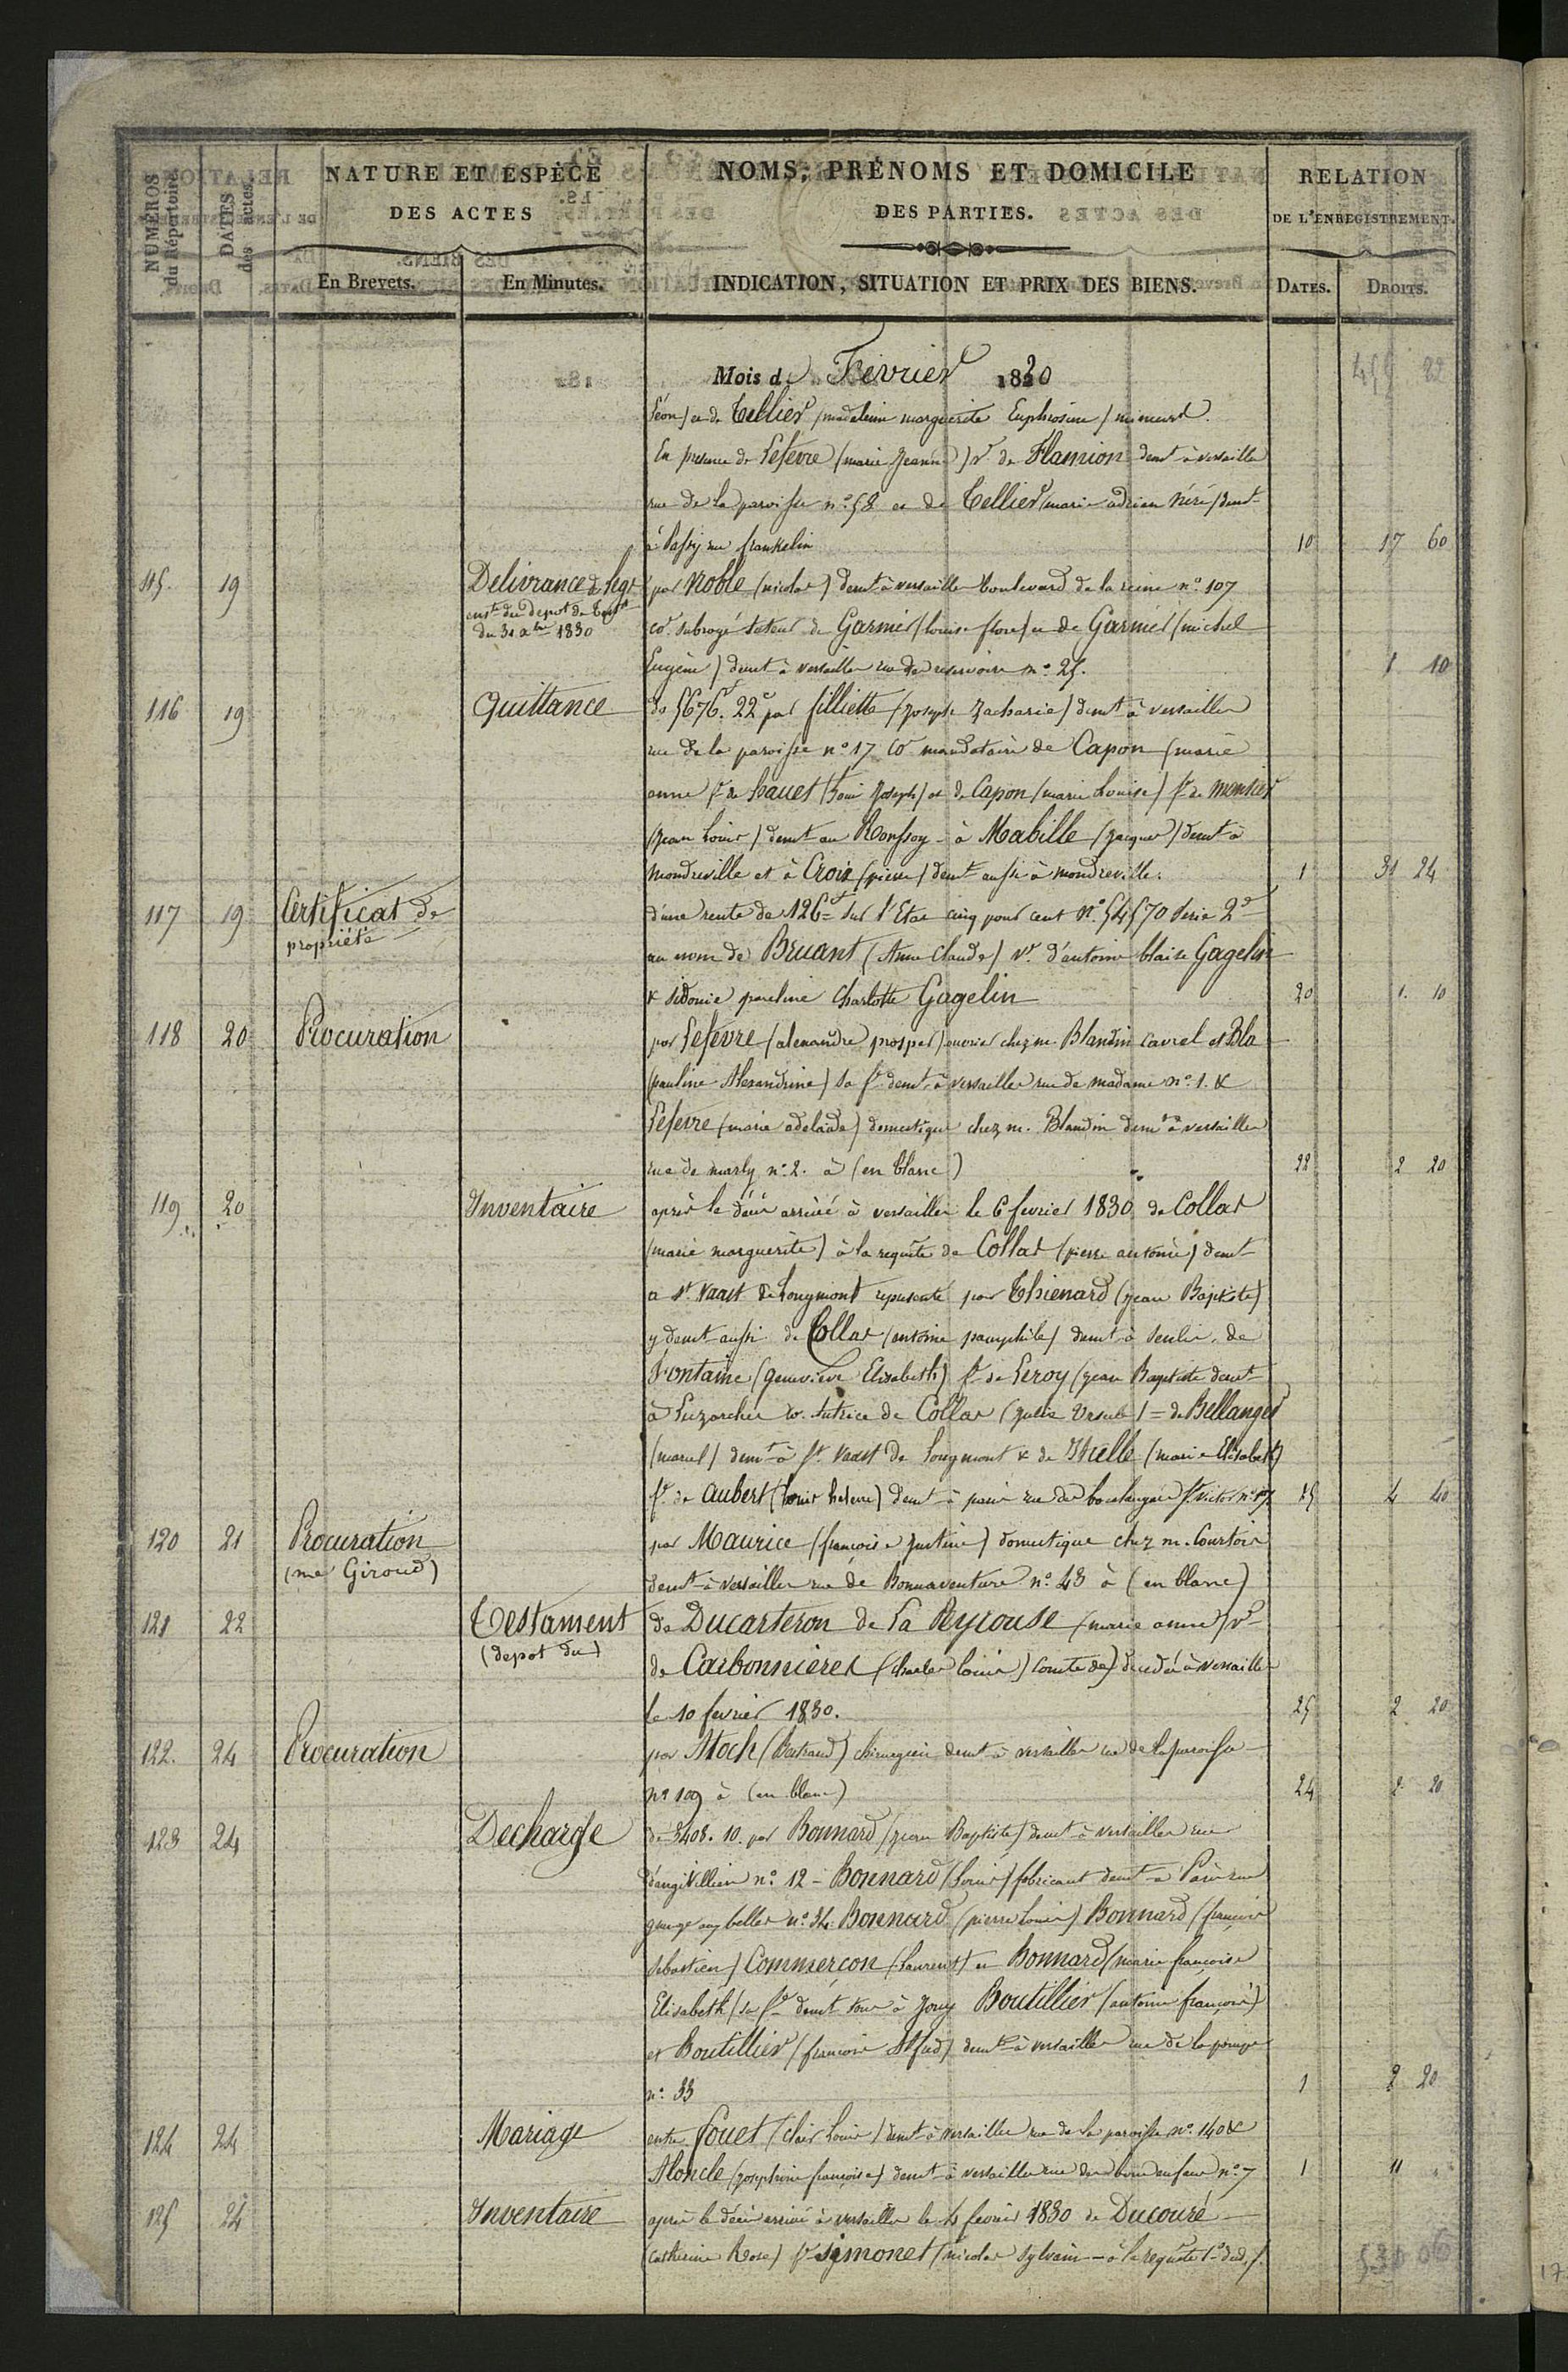 NUMÉROS du Répertoire.
DATES des actes.
NATURE ET ESPÈCE
DES ACTES
En Brevets.
En Minutes.
NOMS, PRÉNOMS ET DOMICILE
DES PARTIES.
INDICATION, SITUATION ET PRIX DES BIENS.
RELATION
DE L'ENREGISTREMENT.
DATES.
DROITS.
Mois de Fevrier 1830
Léon) et de Tellier (madeleine marguerite Euphrosine) mineurs.
En presence de Lefevre (marie Jeanne) Ve de Flamion demt à versailles
rue de la paroisse n° 58 et de Tellier (marie adrien Néré) demt
à Passy rue frankelin 10 17 60
115. 19 Delivrance de legs par Noble (nicolas) demt à versailles boulevard de la reine n° 107
du depot de Test
du 31 1830
co. subrogé tuteur de Garnier (louise flore) et de Garnier (michel
Eugène) demt à versailles rue des reservoirs n° 25. 1 10
116 19 Quittance de 5676f. 22c par filliette (Joseph Zacharie) demt à versailles
rue de la paroisse n° 17 co mandataire de Capon (marie
anne fe de hauet (Louis Joseph) et de Capon (marie Louise) fe de
(Jean Louis) demt au Ronssoy - à Mabille (Jacques) demt à
Mondreville et à Croix (pierre) demt aussi à mondreville. 1 31 24
117 19 Certificat de propriété d'une rente de 126f sur l'Etat cinq pour cent N° 54570 Serie 2e
au nom de Bruant (Anne Claude) Ve d'antoine blaise Gagelin
& sidonie pauline Charlotte Gagelin 20 1. 10
118 20 Procuration par Lefevre (alexandre prosper) ouvrier chez m. Blandin et Bla
(pauline Alexandrine) sa fe demt à versailles rue de madame n° 1. &
Lefevre (marie adelaide) domestique chez m. Blandin demt à versailles
rue de marly n° 2. à (en blanc) 22 2 20
119 20 Inventaire après le décès arrivé à versailles le 6 fevrier 1830 de Collas
(marie marguerite) à la requête de Collas (pierre antoine) demt
a St Vaast de Longmont representé par Thienard (Jean Baptiste)
y demt aussi de Collas (antoine pamphile) demt à Senlis, de
Fontaine (Geneviève Elisabeth) fe de Leroy (Jean Baptiste demt
à Luzarches co. tutrice de Collas (Ursule) = de Bellanger
(marcel) demt à St Vaast de Longmont & de (marie Elisabeth)
fe de Aubert (Louis) demt à paris rue des boulangers St Victor n° 17 25 4 40
120 21 Procuration par Maurice (françoise Justine) domestique chez m. Courtois
(me Giroud)
demt à versailles rue de Bonnaventure n° 43 à (en blanc)
121 22 Testament de Ducarteron de La Peyrouse (marie anne) Ve
(depot du)
de Carbonnieres (charles louis) comte de) decedée à Versailles
le 10 fevrier 1830. 25 2 20
122. 24 Procuration par Atoch (Bertrand) chirurgien demt à versailles rue de la paroisse
n° 109 à (en blanc) 24 2 20
123 24 Decharge de 3408. 10. par Bonnard (Jean Baptiste) demt à versailles rue
d'angivillier n° 12 - Bonnard (Louis) fabricant demt à Paris rue
grange aux belles n° 34 Bonnard (pierre Louis) Bonnard (françois
sebastien) Commerçon (Laurent) et Bonnard (marie françoise
Elisabeth) sa fe demt tous à Jouy Boutillier (antoine françois)
et Boutillier (françois) demt à versailles rue de la pompe
n° 33 1 2 20
124 24 Mariage entre Fouet (clair Louis) demt à versailles rue de la paroisse n° 140 &
Aloncle (Josephine françoise) demt à versailles rue des bons enfans n° 7 1 11
125 24 Inventaire après le décès arrivé à versailles le 4 fevrier 1830 de Ducouré
(catherine Rose) fe Simonet (nicolas Sylvain - à la requête
530 06